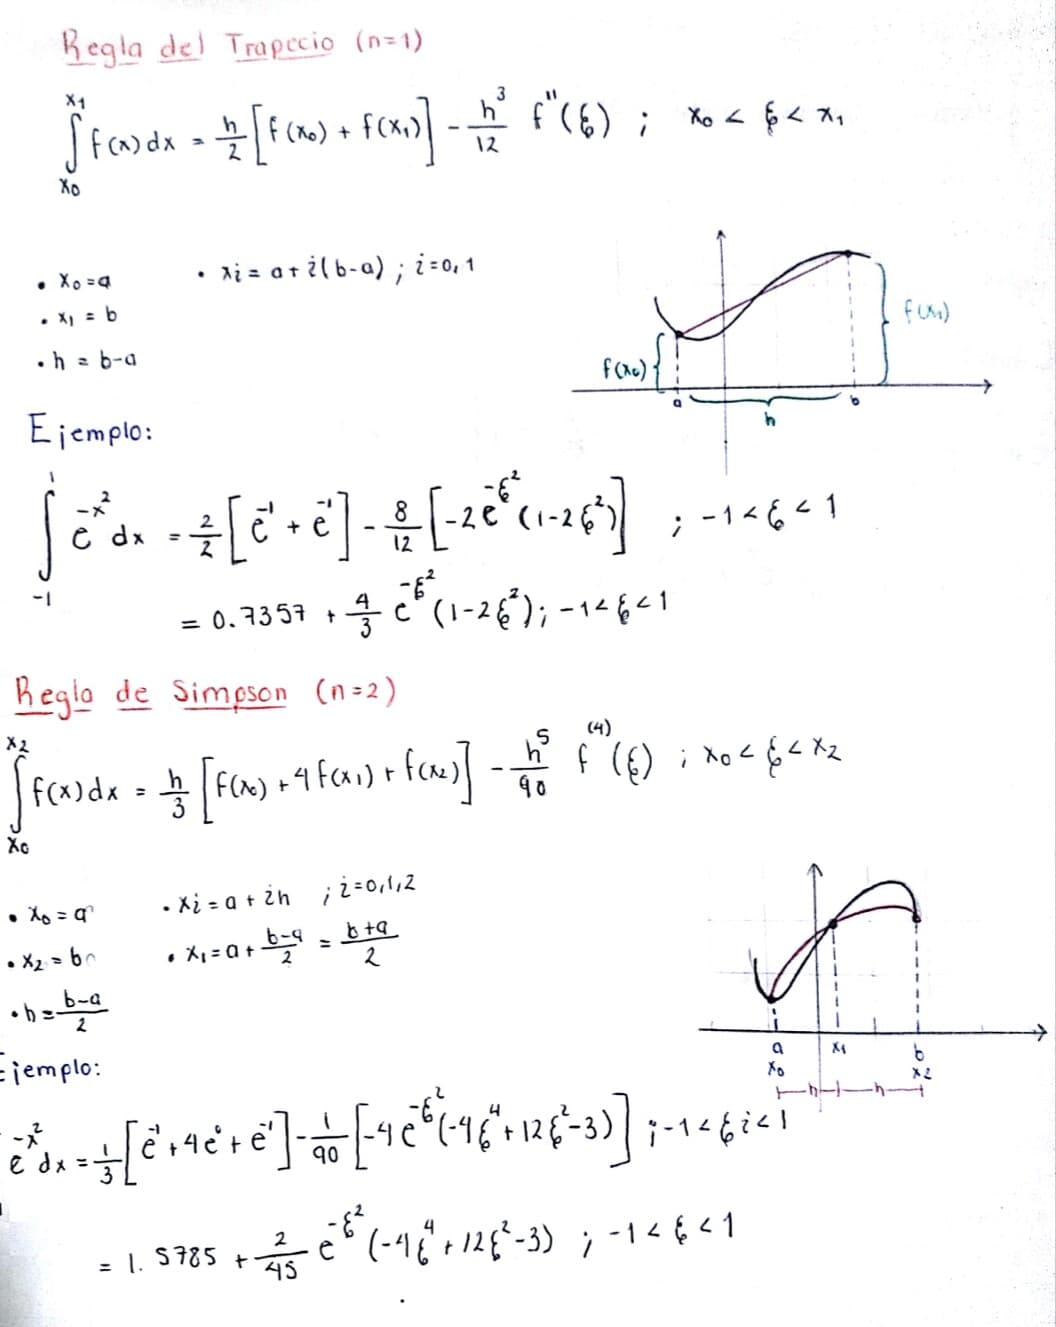 Regla del Trapecio (n=1)
∫_{x₀}^{x₁} f(x) dx = h/2 [f(x₀) + f(x₁)] - h³/12 f''(ξ) ; x₀ < ξ < x₁
• x₀ = a • xi = a + i(b-a) ; i=0,1
• x₁ = b
• h = b-a
f(x₀) f(x₁)
a h b
Ejemplo:
∫_{-1}^{1} e^{-x²} dx = 2/2 [e⁻¹ + e⁻¹] - 8/12 [-2e^{-ξ²} (1-2ξ²)] ; -1 < ξ < 1
= 0.7357 + 4/3 e^{-ξ²} (1-2ξ²); -1 < ξ < 1
Regla de Simpson (n=2)
∫_{x₀}^{x₂} f(x) dx = h/3 [f(x₀) + 4f(x₁) + f(x₂)] - h⁵/90 f⁽⁴⁾(ξ) ; x₀ < ξ < x₂
• x₀ = a • xi = a + ih ; i=0,1,2
• x₂ = b • x₁ = a + b-a/2 = b+a/2
• h = b-a/2
a x₁ b
x₀ x₂
h h
Ejemplo:
e^{-x²} dx = 1/3 [e⁻¹ + 4e⁰ + e⁻¹] - 1/90 [-4e^{-ξ²} (-4ξ⁴ + 12ξ² - 3)] ; -1 < ξi < 1
= 1.5785 + 2/45 e^{-ξ²} (-4ξ⁴ + 12ξ² - 3) ; -1 < ξ < 1